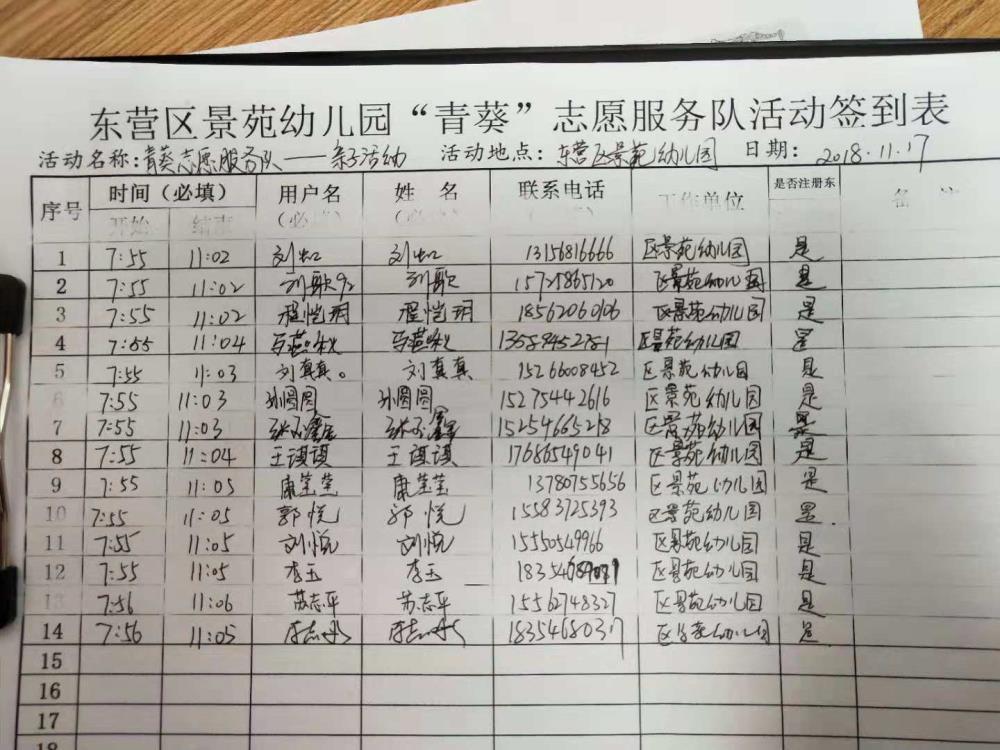 东营区景苑幼儿园“青葵”志愿服务队活动签到表
活动名称：青葵志愿服务队——亲子活动 活动地点：东营区景苑幼儿园 日期：2018.11.17
序号 时间（必填） 用户名 姓 名 联系电话 工作单位 是否注册东
开始 结束 （必填） （必填）
1 7:55 11:02 刘虹 刘虹 13156816666 区景苑幼儿园 是
2 7:55 11:02 刘歌92 刘歌 15721865120 区景苑幼儿园 是
3 7:55 11:02 程恺玥 程恺玥 18562060106 区景苑幼儿园 是
4 7:55 11:04 13589452781 区景苑幼儿园 是
5 7:55 11:03 刘真真。 刘真真 15266008452 区景苑幼儿园 是
6 7:55 11:03 孙圆圆 孙圆圆 15275442616 区景苑幼儿园 是
7 7:55 11:03 15254665218 区景苑幼儿园 是
8 7:55 11:04 王祺祺 王祺祺 17686549041 区景苑幼儿园 是
9 7:55 11:05 康莹莹 康莹莹 13780755656 区景苑幼儿园 是
10 7:55 11:05 郭悦 郭悦 15583725393 区景苑幼儿园 是.
11 7:55 11:05 刘悦 刘悦 15550549966 区景苑幼儿园 是
12 7:55 11:05 李玉 李玉 区景苑幼儿园 是
13 7:56 11:06 苏志平 苏志平 15562748327 区景苑幼儿园 是
14 7:56 11:05 18354680317 区景苑幼儿园 是
15
16
17
18